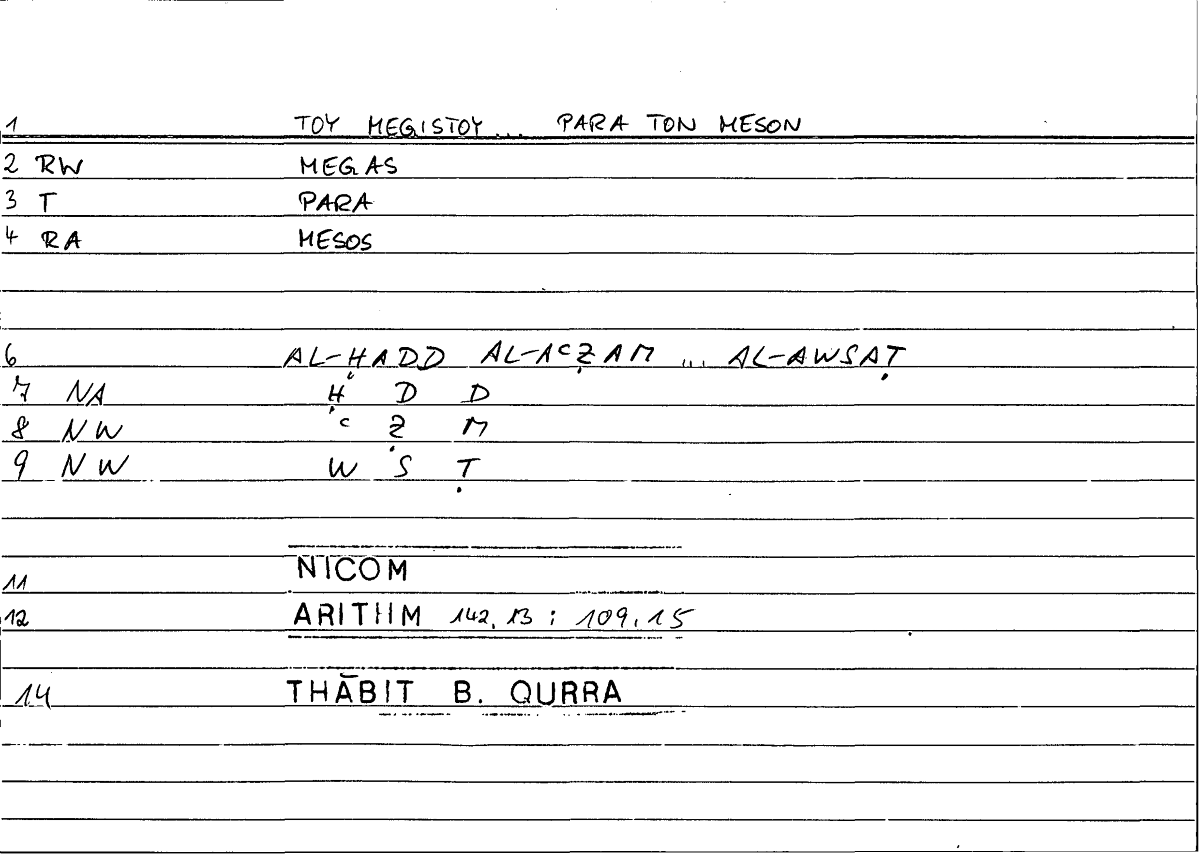 1 TOY MEGISTOY ... PARA TON MESON
2 RW MEGAS
3 T PARA
4 RA MESOS
6 AL-ḤADD AL-AcẒAM ... AL-AWSAṬ
7 NA Ḥ D D
8 NW c Ẓ M
9 NW W S Ṭ
11 NICOM
12 ARITHM 142,13 ; 109,15
14 THĀBIT B. QURRA